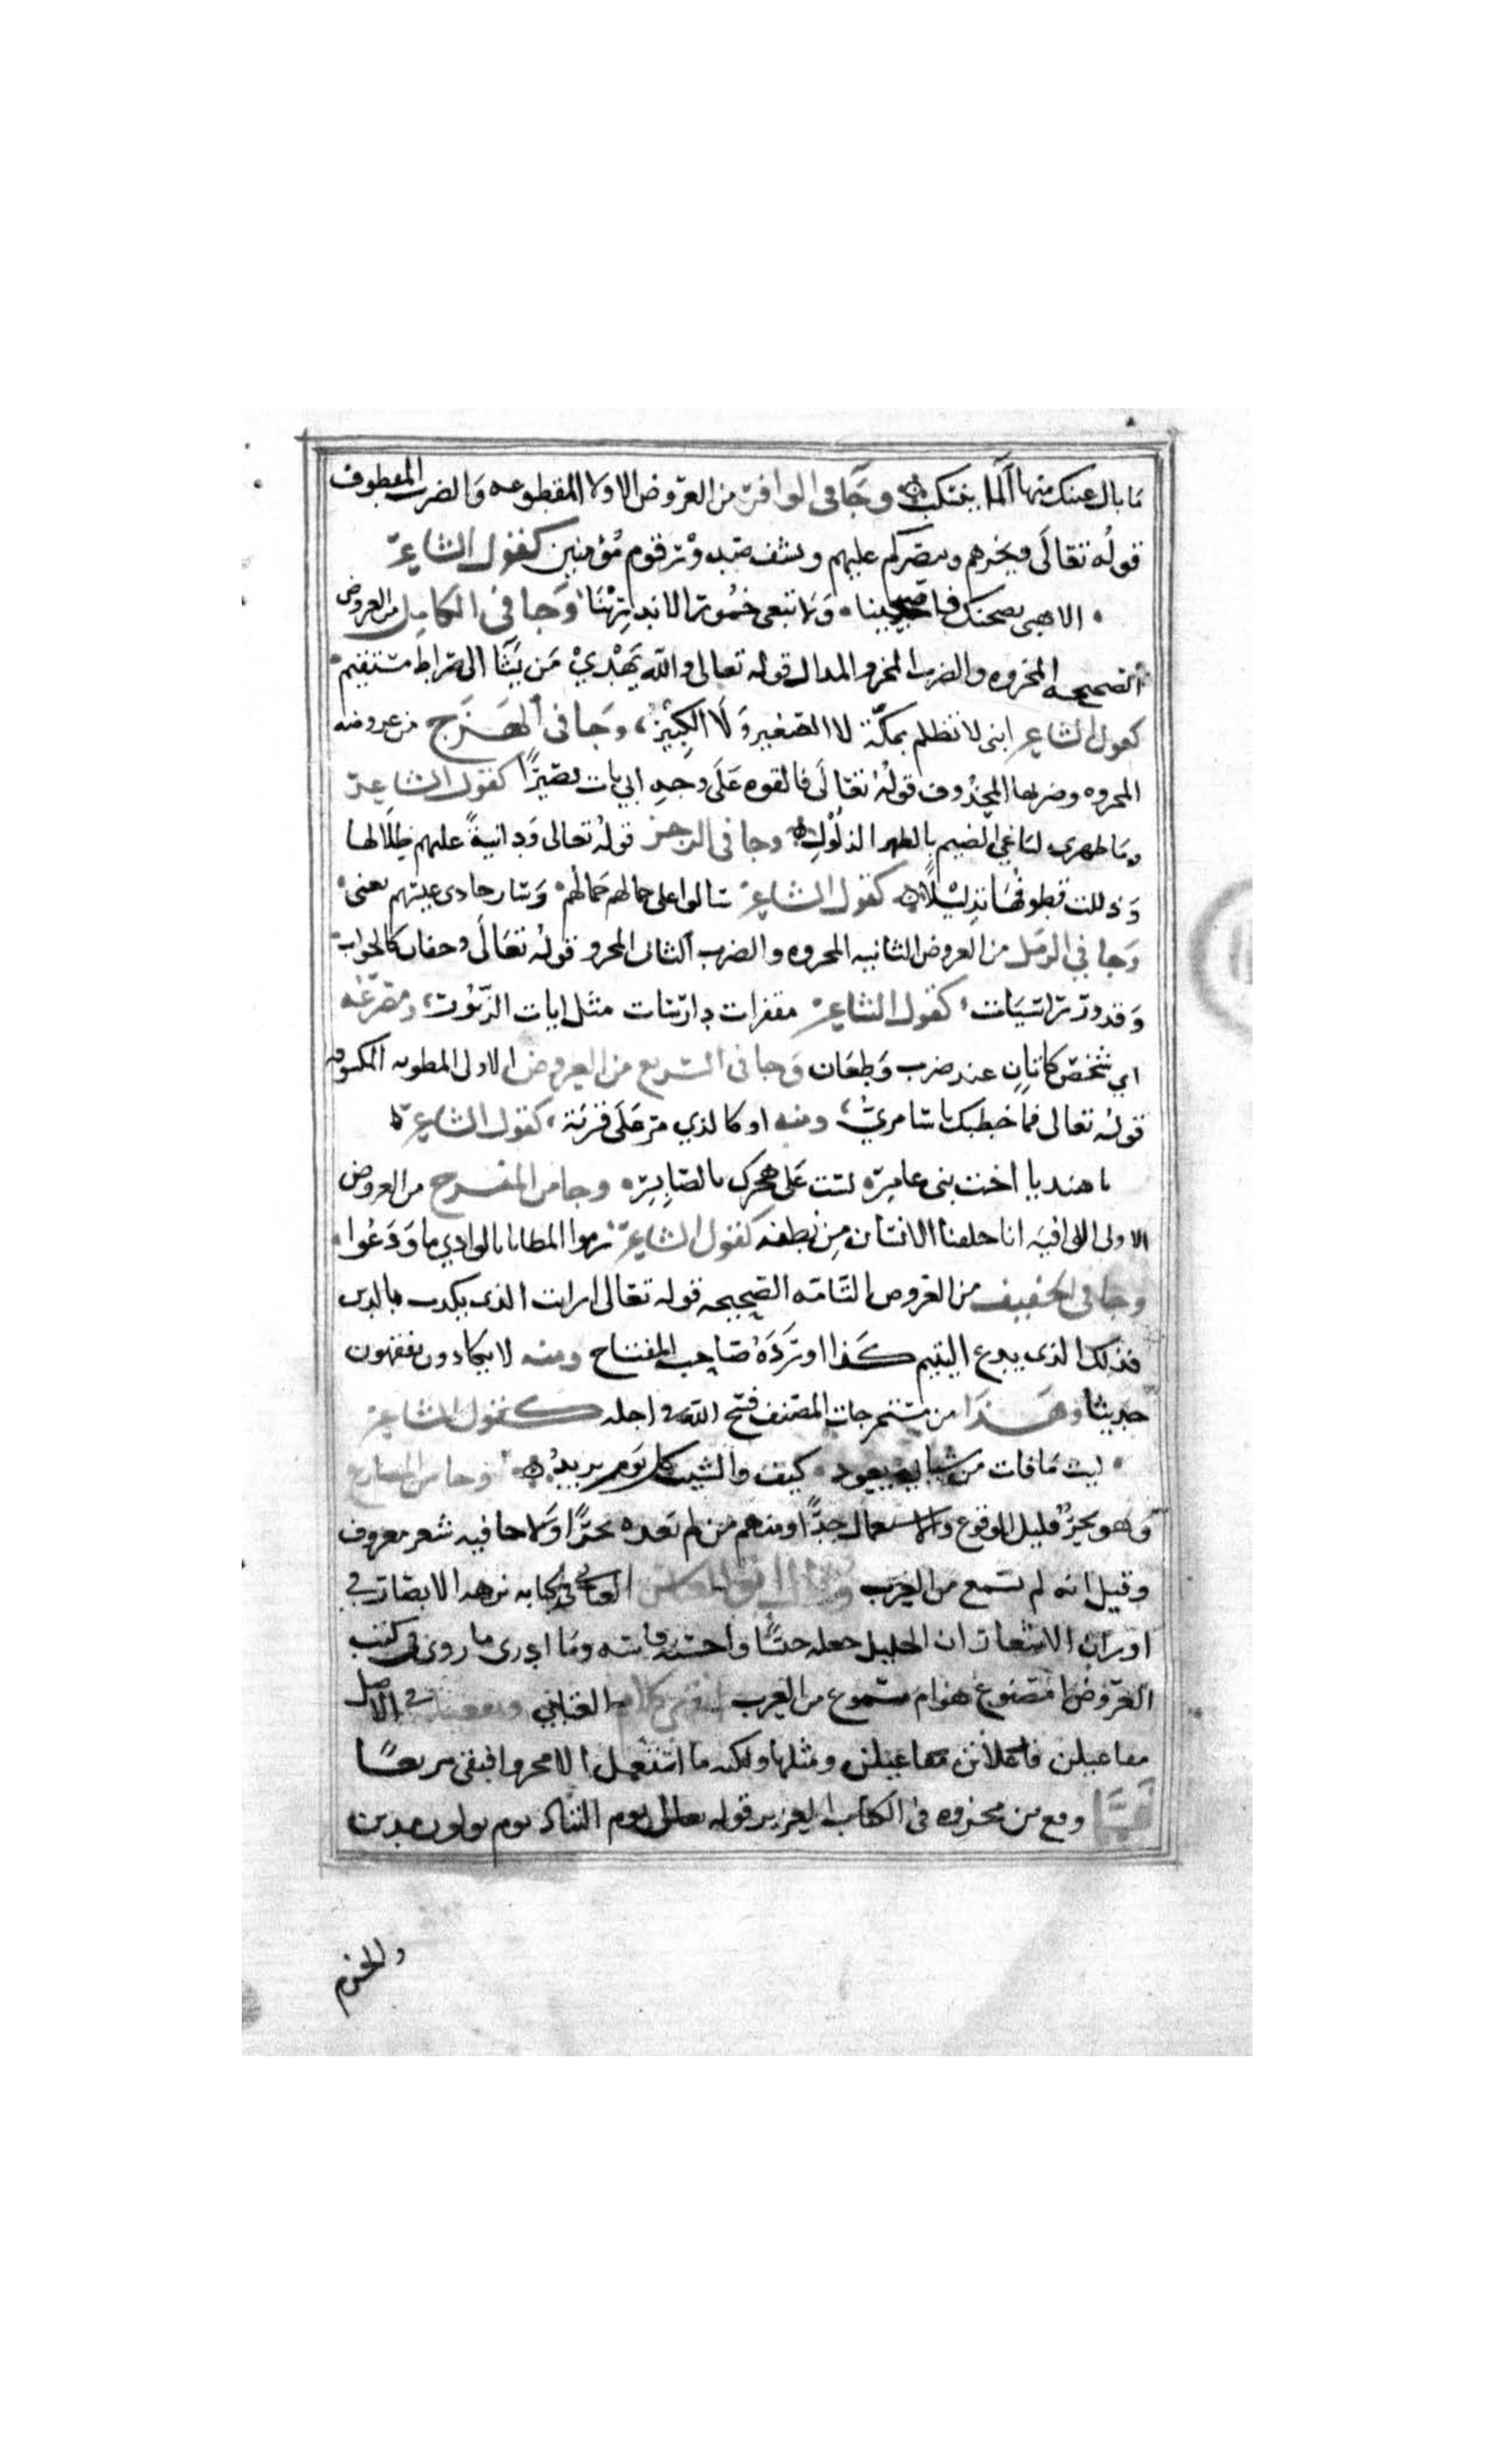 ما بال عينك منها الما ينسكب وجا في الوافر من العروض الاولا المقطوعه والضرب المقطوف
قوله تعالى ويخزهم وينصركم عليهم ويشف صدور قوم مؤمنين كقول الشاعر
الا هبي بصحنك فاصبحينا ولا تبقى خمور الاندرينا وجا في الكامل من العروض
الصحيحه المجزوه والضرب المجزو المدال قوله تعالى والله يهدي من يشا الى صراط مستقيم
كقول الشاعر ابني لا تظلم بمكة لا الصغير ولا الكبير وجا في الهزج من عروضه
المجزوه وضربها المحذوف قوله تعالى فالقوه على وجه ابي يات بصيرًا كقول الشاعر
وما ظهري لباغي الضيم بالظهر الذلول وجا في الرجز قوله تعالى ودانيةً عليهم ظلالها
وذللت قطوفها تذليلًا كقول الشاعر شالوا على جمالهم جمالهم وسار حادي عيسهم يغني
وجا في الرمل من العروض الثانيه المجزوه والضرب الثاني المجزو قوله تعالى وجفان كالجواب
وقدور راسيات كقول الشاعر مقفرات دارسات مثل ايات الزبور ومصرعه
اي شخص كابان عند ضرب وطعان وجا في السريع من العروض الاولى المطويه المكسوفه
قوله تعالى فما خطبك يا سامري ومنه او كالذي مر على قرية كقول الشاعر
يا هند يا اخت بني عامره لست على هجرك بالصابره وجا من المنسرح من العروض
الاولى الوافيه انا خلقنا الانسان من نطفه كقول الشاعر زموا المطايا بالوادي ما ودعوا
وجا في الخفيف من العروض التامه الصحيحه قوله تعالى ارايت الذي يكذب بالدين
فذلك الذي يدع اليتيم كذا اورده صاحب المفتاح ومنه لا يكادون يفقهون
حديثا وهذا من مستخرجات المصنف فتح الله في اجله كقول الشاعر
ليت ما فات من شبابي يعود كيف والشيب كل يوم يزيد وجا من المضارع
وهو بحرٌ قليل الوقوع والاستعمال جدًا ومنهم من لم يعده بحرًا ولا جا فيه شعر معروف
وقيل انه لم يسمع من العرب العنابي في كتابه نزهه الابصار في
اوزان الاشعار ان الخليل جعله جنسًا واحسبه قاسه وما ادري ما روي في كتب
العروض امصنوع هو ام مسموع من العرب انتهى كلام العنابي في الاصل
مفاعيلن فاعلاتن مفاعيلن ومثلها ولكنه ما استعمل الا مجزوا فبقى مربعًا
ومع من مجزوه في الكتاب العزيز قوله تعالى يوم التناد يوم تولون مدبرين
والخرم